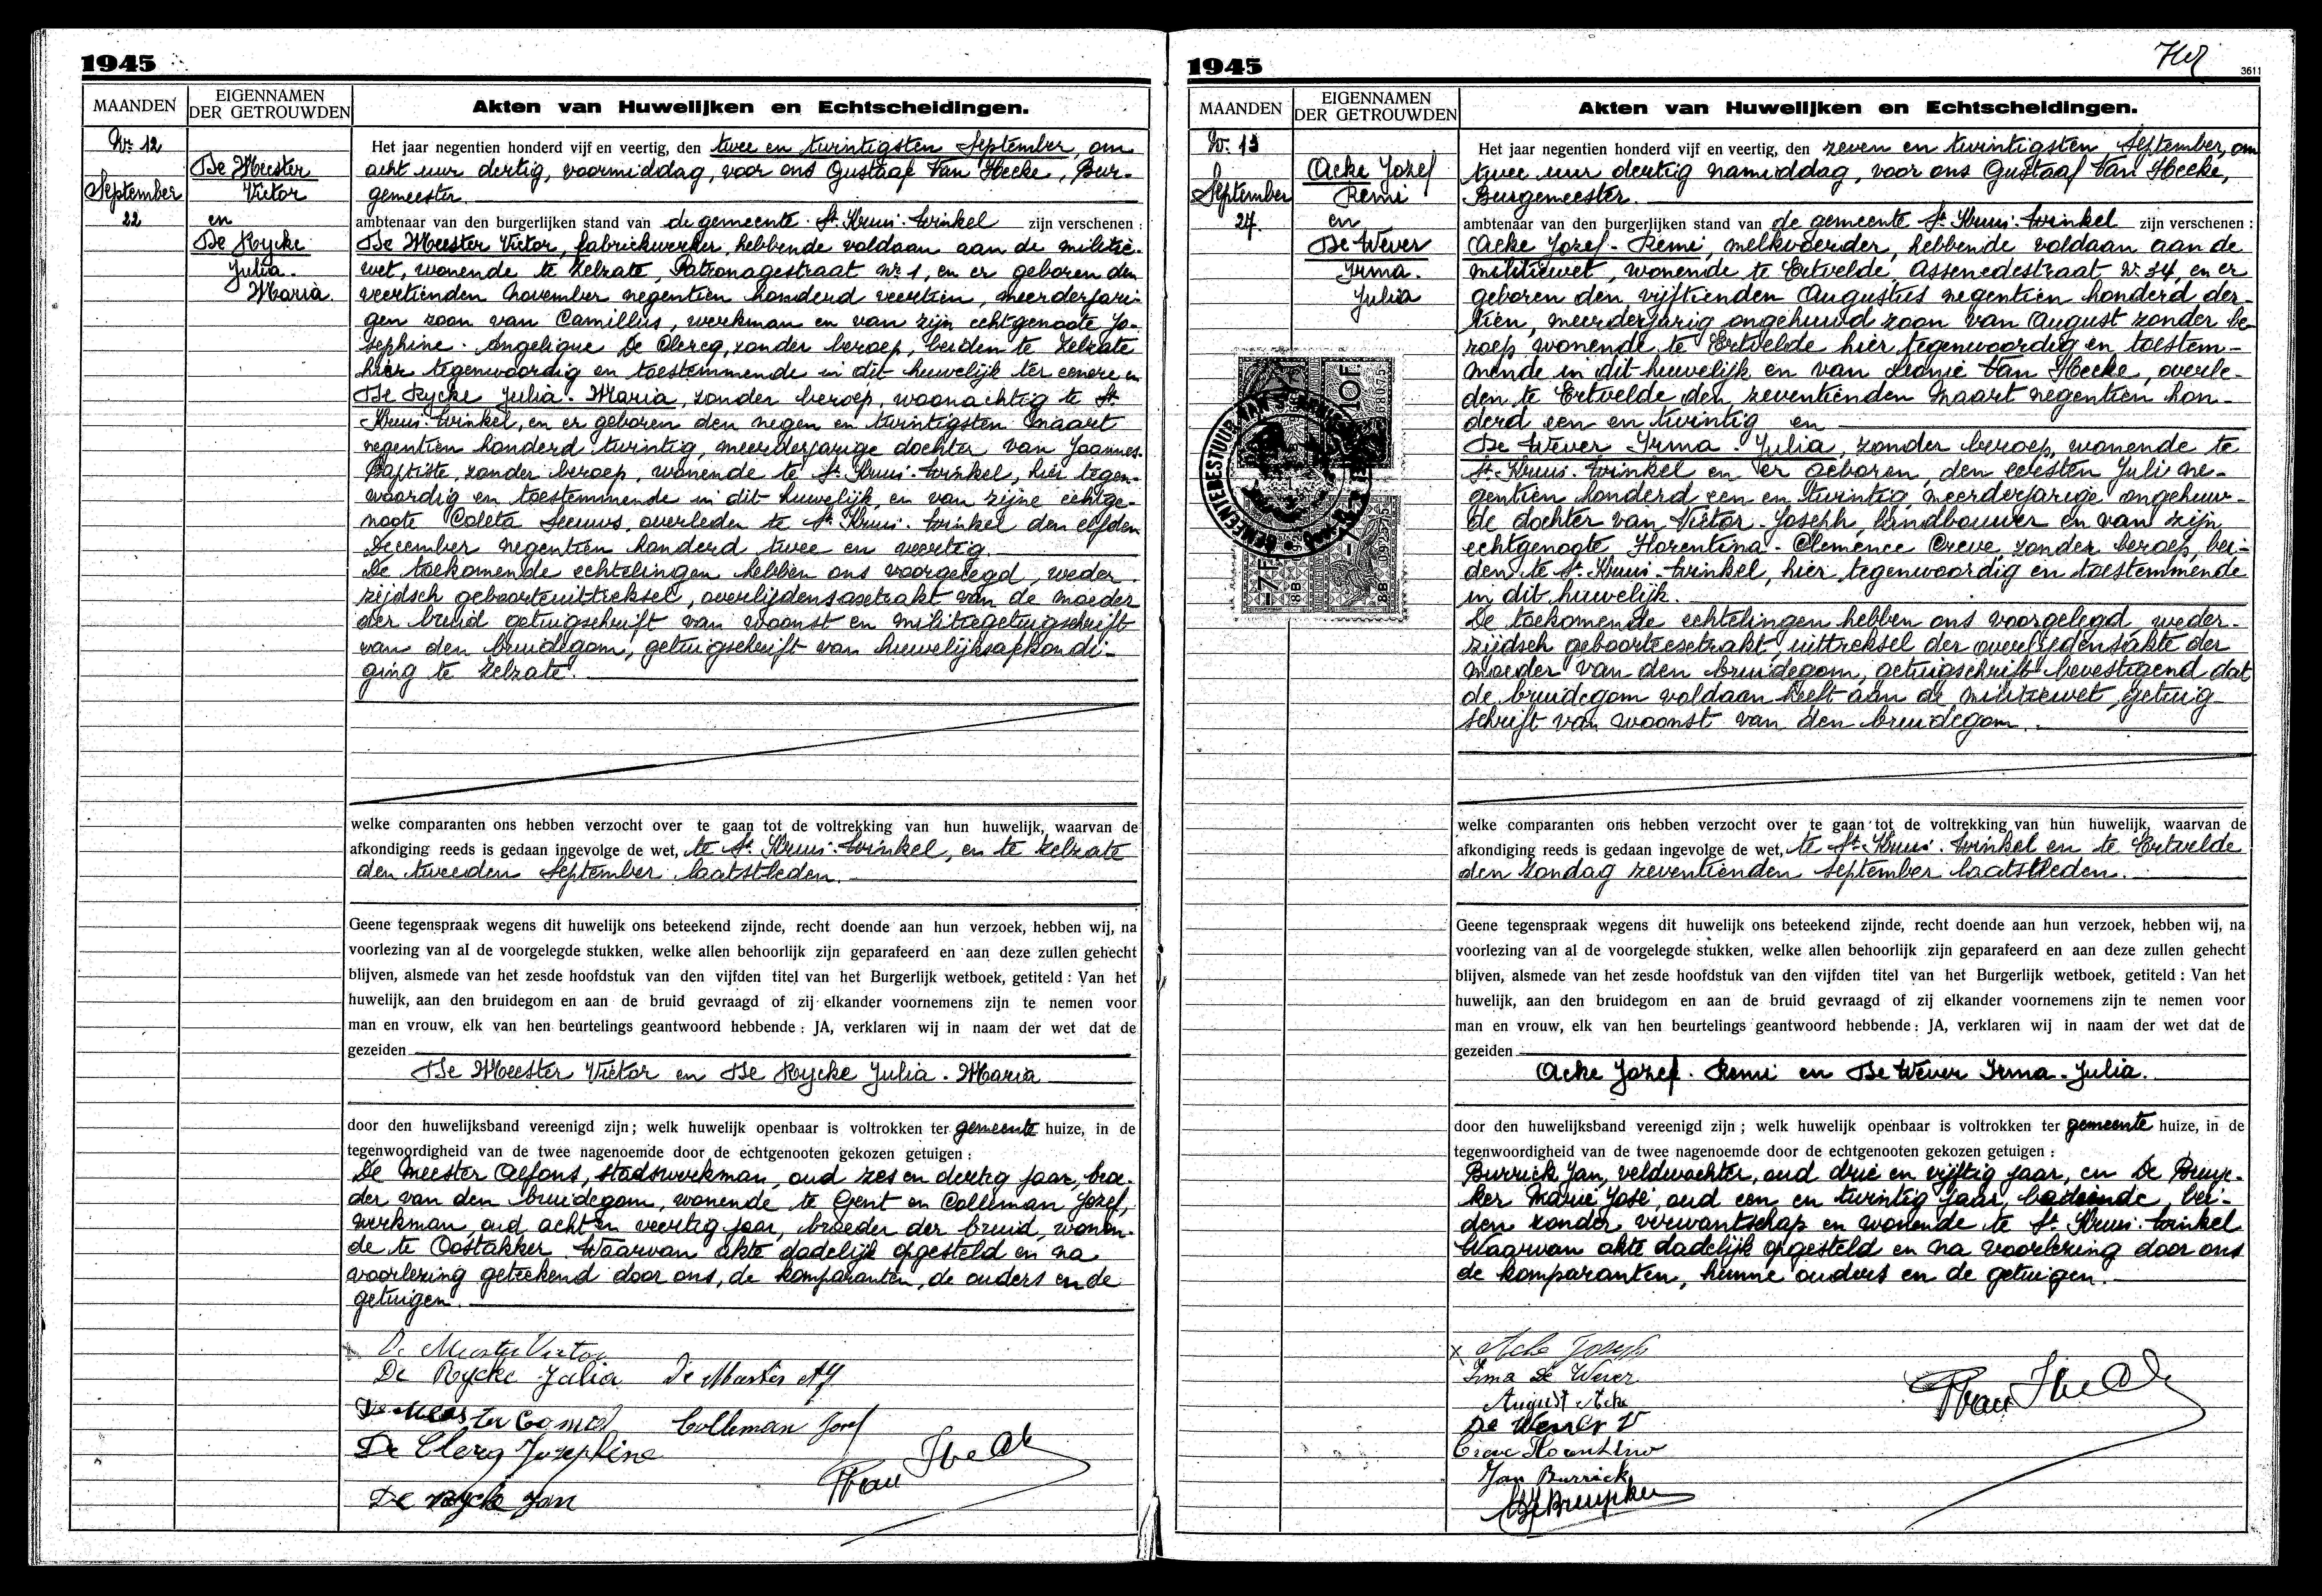 1945
MAANDEN
EIGENNAMEN
DER GETROUWDEN
Akten van Huwelijken en Echtscheidingen.
Nr. 12
September
22
De Meester
Victor
en
De Rycke
Julia.
Maria.
Het jaar negentien honderd vijf en veertig, den twee en twintigsten September, om
acht uur dertig, voormiddag, voor ons Gustaaf Van Hecke, Bur-
gemeester.
ambtenaar van den burgerlijken stand van de gemeente St. Kruis-Winkel zijn verschenen :
De Meester Victor, fabriekwerker, hebbende voldaan aan de militie-
wet, wonende te Zelzate, Patronagestraat Nr 1, en er geboren den
veertienden November negentien honderd veertien, meerderjari-
gen zoon van Camillus, werkman en van zijn echtgenoote Jo-
sephine-Angelique De Clercq, zonder beroep, beiden te Zelzate
hier tegenwoordig en toestemmende in dit huwelijk ter eenere en
De Rycke Julia-Maria, zonder beroep, woonachtig te St
Kruis-Winkel, en er geboren den negen en twintigsten Maart
negentien honderd twintig, meerderjarige dochter van Joannes-
Baptiste, zonder beroep, wonende te St Kruis-Winkel, hier tegen-
woordig en toestemmende in dit huwelijk, en van zijne echtge-
noote Coleta Seeuws, overleden te St. Kruis-Winkel den elfden
December negentien honderd twee en veertig.
De toekomende echtelingen hebben ons voorgelegd, weder-
zijdsch geboorteuittreksel, overlijdensaextrakt van de moeder
der bruid getuigschrift van woonst en militiegetuigschrift
van den bruidegom, getuigschrift van huwelijksafkondi-
ging te Zelzate.
welke comparanten ons hebben verzocht over te gaan tot de voltrekking van hun huwelijk, waarvan de
afkondiging reeds is gedaan ingevolge de wet, te St. Kruis-Winkel, en te Zelzate
den tweeden September laatstleden.
Geene tegenspraak wegens dit huwelijk ons beteekend zijnde, recht doende aan hun verzoek, hebben wij, na
voorlezing van al de voorgelegde stukken, welke allen behoorlijk zijn geparafeerd en aan deze zullen gehecht
blijven, alsmede van het zesde hoofdstuk van den vijfden titel van het Burgerlijk wetboek, getiteld : Van het
huwelijk, aan den bruidegom en aan de bruid gevraagd of zij elkander voornemens zijn te nemen voor
man en vrouw, elk van hen beurtelings geantwoord hebbende : JA, verklaren wij in naam der wet dat de
gezeiden
De Meester Victor en De Rycke Julia-Maria
door den huwelijksband vereenigd zijn ; welk huwelijk openbaar is voltrokken ter gemeente huize, in de
tegenwoordigheid van de twee nagenoemde door de echtgenooten gekozen getuigen :
De Meester Alfons, stadswerkman, oud zes en dertig jaar, broe-
der van den bruidegom, wonende te Gent en Colleman Jozef,
werkman, oud acht en veertig jaar, broeder der bruid, wonen-
de te Oostakker. Waarvan akte dadelijk opgesteld en na
voorlezing geteekend door ons, de komparanten, de ouders en de
getuigen.
De Meester Victor
De Rycke Julia De Meester Alf
De Meester Camiel Colleman Jozef
De Clercq Josephine
De Rycke Jan
1945
3611
MAANDEN
EIGENNAMEN
DER GETROUWDEN
Akten van Huwelijken en Echtscheidingen.
Nr. 13
September
27.
Acke Jozef
Remi
en
De Wever
Irma.
Julia
10F
7F
GEMEENTEBESTUUR VAN
Het jaar negentien honderd vijf en veertig, den zeven en twintigsten September, om
twee uur dertig namiddag, voor ons Gustaaf Van Hecke,
Burgemeester.
ambtenaar van den burgerlijken stand van de gemeente St. Kruis-Winkel zijn verschenen :
Acke Jozef-Remi, melkvoerder, hebbende voldaan aan de
militiewet, wonende te Ertvelde, Assenedestraat, Nr. 34, en er
geboren den vijftienden Augustus negentien honderd der-
tien, meerderjarig ongehuwd zoon van August zonder be-
roep wonende te Ertvelde hier tegenwoordig en toestem-
mende in dit huwelijk en van Leonie Van Hecke, overle-
den te Ertvelde den zeventienden Maart negentien hon-
derd een en twintig en
De Wever Irma-Julia, zonder beroep, wonende te
St. Kruis-Winkel en er geboren, den eersten Julie ne-
gentien honderd een en twintig, meerderjarige ongehuw-
de dochter van Victor-Joseph, landbouwer en van zijn
echtgenoote Florentina-Clemence Creve, zonder beroep, bei-
den te St. Kruis-Winkel, hier tegenwoordig en toestemmende
in dit huwelijk.
De toekomende echtelingen hebben ons voorgelegd, weder-
zijdsch geboorteextrakt, uittreksel der overlijdensakte der
moeder van den bruidegom, getuigschrift bevestigend dat
de bruidegom voldaan heeft aan de militiewet, getuig
schrift van woonst van den bruidegom.
welke comparanten ons hebben verzocht over te gaan tot de voltrekking van hun huwelijk, waarvan de
afkondiging reeds is gedaan ingevolge de wet, te St. Kruis-Winkel en te Ertvelde
den zondag zeventienden September laatstleden.
Geene tegenspraak wegens dit huwelijk ons beteekend zijnde, recht doende aan hun verzoek, hebben wij, na
voorlezing van al de voorgelegde stukken, welke allen behoorlijk zijn geparafeerd en aan deze zullen gehecht
blijven, alsmede van het zesde hoofdstuk van den vijfden titel van het Burgerlijk wetboek, getiteld : Van het
huwelijk, aan den bruidegom en aan de bruid gevraagd of zij elkander voornemens zijn te nemen voor
man en vrouw, elk van hen beurtelings geantwoord hebbende : JA, verklaren wij in naam der wet dat de
gezeiden
Acke Jozef-Remi en De Wever Irma-Julia.
door den huwelijksband vereenigd zijn ; welk huwelijk openbaar is voltrokken ter gemeente huize, in de
tegenwoordigheid van de twee nagenoemde door de echtgenooten gekozen getuigen :
Burrick Jan, veldwachter, oud drie en vijftig jaar, en De Bruyc-
ker Marie José, oud een en twintig jaar, bediende, bei-
den zonder verwantschap en wonende te St. Kruis-Winkel
Waarvan akte dadelijk opgesteld en na voorlezing door ons
de komparanten, hunne ouders en de getuigen.
x Acke Joseph
Irma De Wever
August Acke
De Wever V
Creve Florentina
Jan Burrick